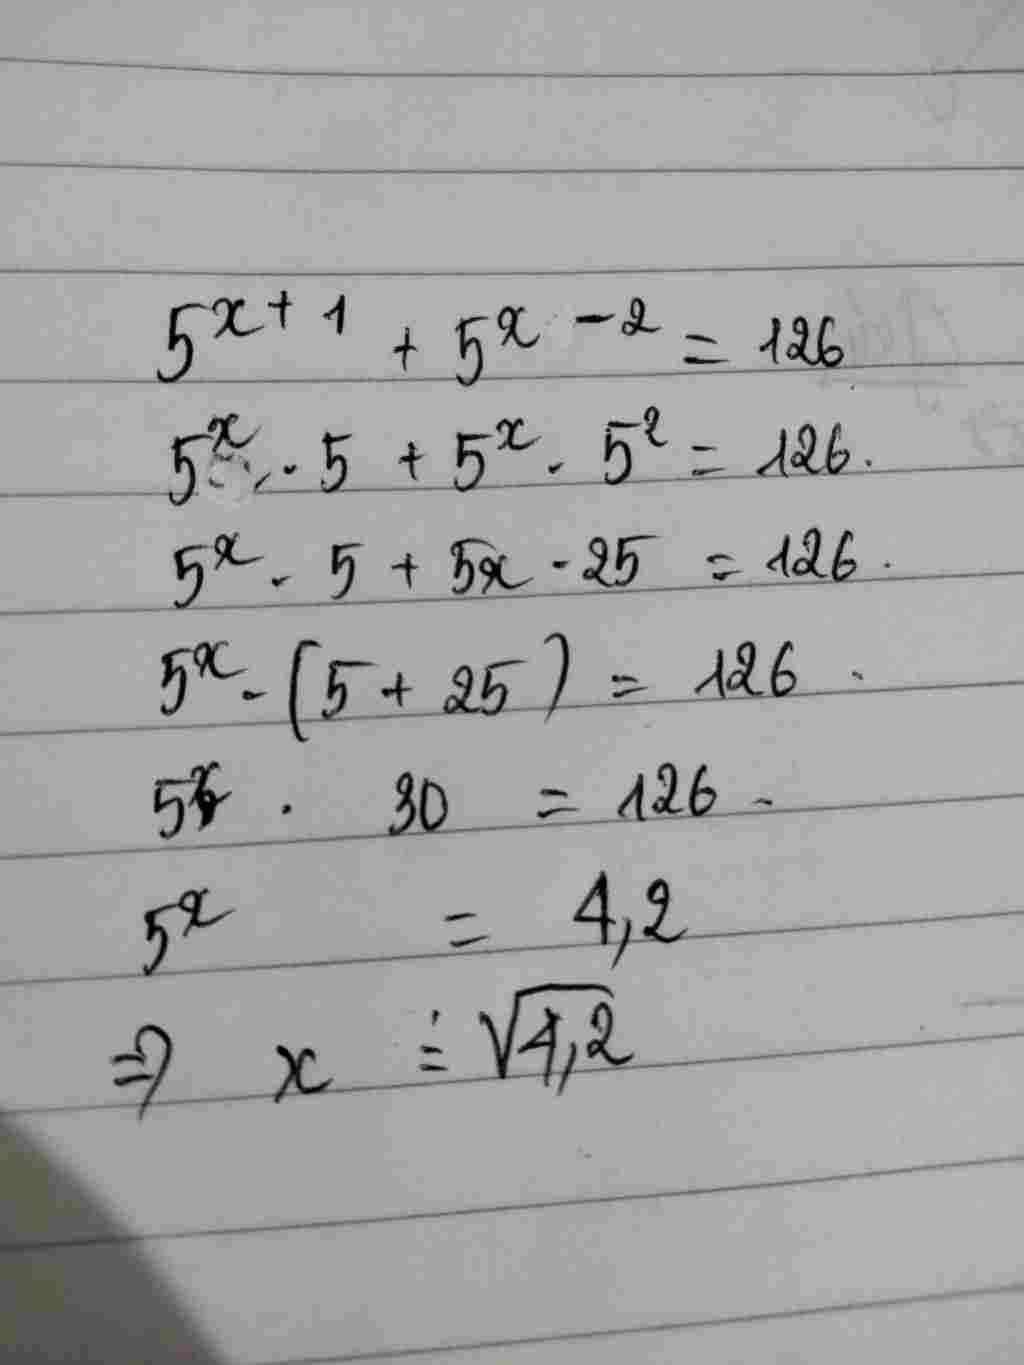 5^{x+1} + 5^{x-2} = 126
5^x . 5 + 5^x . 5^2 = 126.
5^x . 5 + 5x . 25 = 126.
5^x . (5 + 25) = 126.
5^x . 30 = 126.
5^x = 4,2
⇒ x = √4,2